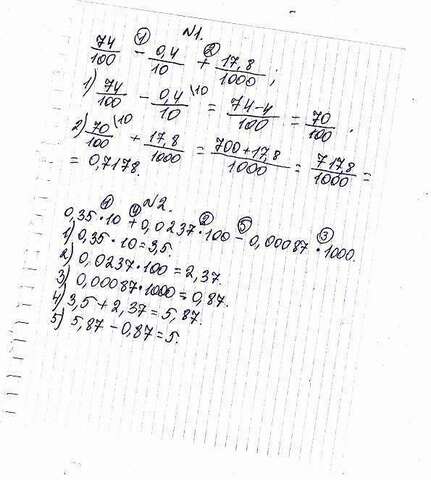 N1.
74/100 - ① 0,4/10 + ② 17,8/1000 ;
1) 74/100 - 0,4/10 \10 = 74-4/100 = 70/100 ;
2) 70/100 \10 + 17,8/1000 = 700+17,8/1000 = 717,8/1000 =
= 0,7178.
N2.
0,35 ·① 10 +④ 0,0237 ·② 100 -⑤ 0,00087 ·③ 1000.
1) 0,35·10=3,5.
2) 0,0237·100=2,37.
3) 0,00087·1000=0,87.
4) 3,5+2,37=5,87.
5) 5,87-0,87=5.